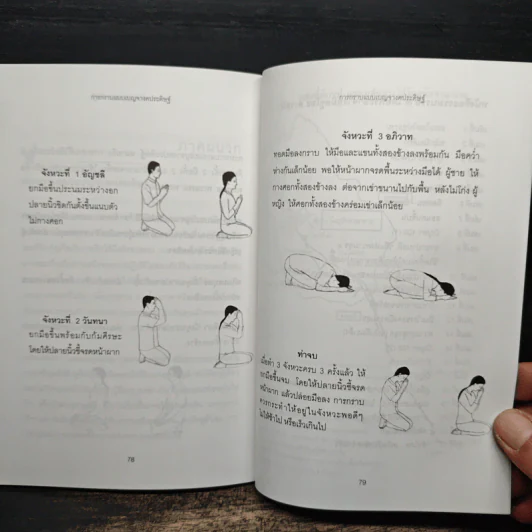 การกราบแบบเบญจางคประดิษฐ์
จังหวะที่ 1 อัญชลี
ยกมือขึ้นประนมระหว่างอก
ปลายนิ้วชิดกันตั้งขึ้นแนบตัว
ไม่กางศอก
จังหวะที่ 2 วันทนา
ยกมือขึ้นพร้อมกับก้มศีรษะ
โดยให้ปลายนิ้วชี้จรดหน้าผาก
78
การกราบแบบเบญจางคประดิษฐ์
จังหวะที่ 3 อภิวาท
ทอดมือลงกราบ ให้มือและแขนทั้งสองข้างลงพร้อมกัน มือคว่ำ
ห่างกันเล็กน้อย พอให้หน้าผากจรดพื้นระหว่างมือได้ ผู้ชาย ให้
กางศอกทั้งสองข้างลง ต่อจากเข่าขนานไปกับพื้น หลังไม่โก่ง ผู้
หญิง ให้ศอกทั้งสองข้างคร่อมเข่าเล็กน้อย
ท่าจบ
เมื่อทำ 3 จังหวะครบ 3 ครั้งแล้ว ให้
ยกมือขึ้นจบ โดยให้ปลายนิ้วชี้จรด
หน้าผาก แล้วปล่อยมือลง การกราบ
ควรกระทำให้อยู่ในจังหวะพอดีๆ
ไม่ให้ช้าไป หรือเร็วเกินไป
79